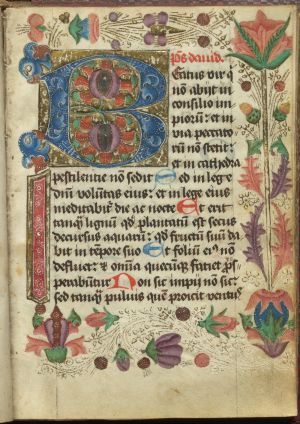 ps̄ david.
Beatus vir q̄
nō abijt in
consilio im
pioru: et in
via peccato
ru nō stetit:
et in cathedra
pestilentie nō sedit Sed in lege
dn̄i volūtas eius: et in lege eius
meditabit᷑ die ac nocte Et erit
tanq̄ lignū qd̄ plantatū est secus
decursus aquarū: qd̄ fructū suū da
bit in tēpore suo Et foliū ei᷒ nō
defluet: et omīa quecūq̄ faciet ps̄
perabūtur Non sic impij nō sic:
sed tanq̄ puluis quē proicit ventus